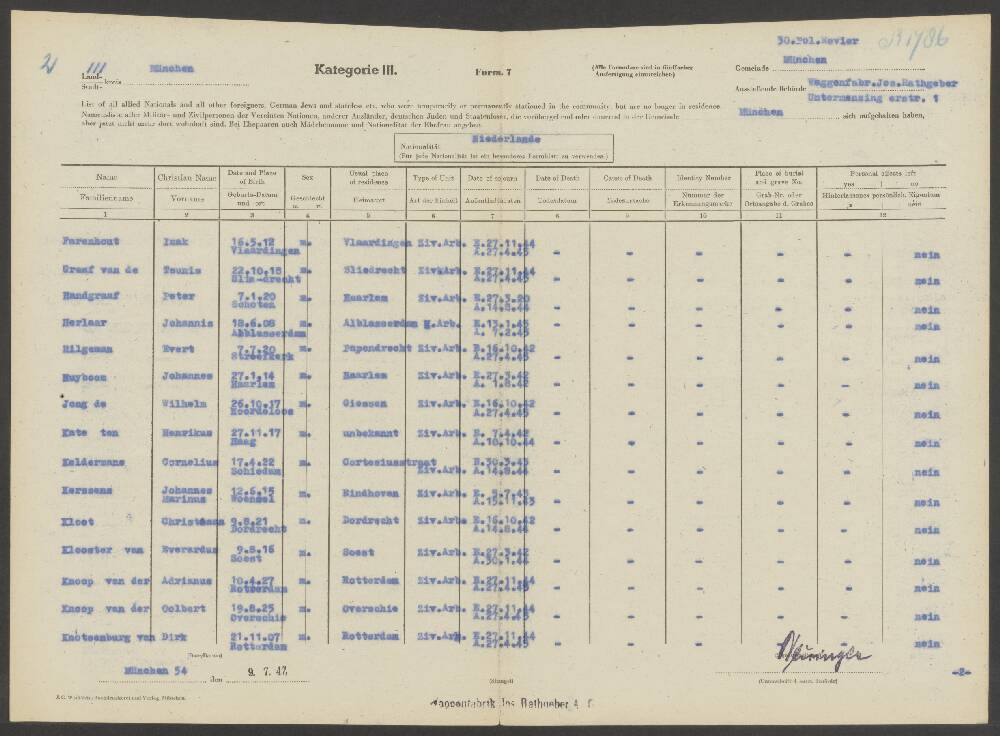 30.Pol.Revier
München
III
Land-
Stadt- kreis München
Kategorie III.
Form. 7
(Alle Formulare sind in fünffacher
Ausfertigung einzureichen)
Gemeinde München
Ausstellende Behörde Waggonfabr.Jos.Rathgeber
Untermenzing erstr. 1
List of all allied Nationals and all other foreigners, German Jews and stateless etc. who were temporarily or permanently stationed in the community, but are no longer in residence.
Namensliste aller Militär- und Zivilpersonen der Vereinten Nationen, anderer Ausländer, deutschen Juden und Staatenloser, die vorübergehend oder dauernd in der Gemeinde München sich aufgehalten haben,
aber jetzt nicht mehr dort wohnhaft sind. Bei Ehepaaren auch Mädchenname und Nationalität der Ehefrau angeben.
Niederlande
Nationalität
(Für jede Nationalität ist ein besonderes Formblatt zu verwenden.)
Name Christian Name Date and Place of Birth Sex Usual place of residence Type of Unit Date of sojourn Date of Death Cause of Death Identity Number Place of burial and grave No. Personal effects left yes no
Familienname Vorname Geburts-Datum und -ort Geschlecht m. w. Heimatort Art der Einheit Aufenthaltsdaten Todesdatum Todesursache Nummer der Erkennungsmarke Grab-Nr. oder Ortsangabe d. Grabes Hinterlassenes persönlich. Eigentum ja nein
1 2 3 4 5 6 7 8 9 10 11 12
Farenhout Izak 16.5.12 m. Vlaardingen Ziv.Arb. E.27.11.44 - - - - - nein
Vlaardingen A.27.4.45
Graaf van de Teunis 22.10.18 m. Sliedrecht ZivArb. E.27.11.44 - - - - - nein
Slie-drecht A.27.4.45
Handgraaf Peter 7.1.20 m. Haarlem Ziv.Arb. E.27.3.20 - - - - - nein
Schoten A.14.8.44
Herlaar Johannis 18.6.08 m. Alblasserdam Z.Arb. E.13.1.45 - - - - - nein
Alblasserdam A. 7.2.45
Hilgeman Evert 7.7.20 m. Papendrecht Ziv.Arb. E.16.10.42 - - - - - nein
Streefkerk A.27.4.45
Huyboom Johannes 27.1.14 m. Haarlem Ziv.Arb. E.27.3.42 - - - - - nein
Haarlem A. 1.8.42
Jong de Wilhelm 26.10.17 m. Giessen Ziv.Arb. E.16.10.42 - - - - - nein
Noordeloos A.27.4.45
Kate ten Henrikus 27.11.17 m. unbekannt Ziv.Arb. E. 7.4.42 - - - - - nein
Haag A.10.10.44
Keldermans Cornelius 17.4.22 m. Cortesiusstraat E.30.3.43 - - - - - nein
Schiedam Ziv.Arb. A.14.8.44
Kerssens Johannes 12.6.15 m. Eindhoven Ziv.Arb. - - - - - nein
Marinus Woensel A.15.11.43
Kloot Christmann 9.8.21 m. Dordrecht Ziv.Arb E.16.10.42 - - - - - nein
Dordrecht A.14.8.44
Klooster van Everardus 9.8.16 m. Soest Ziv.Arb. E.27.3.42 - - - - - nein
Soest A.30.1.44
Knoop van der Adrianus 10.4.27 m. Rotterdam Ziv.Arb. E.27.11.44 - - - - - nein
Rotterdam A.27.4.45
Knoop van der Colbert 19.8.25 m. Overschie Ziv.Arb. E.27.11.44 - - - - - nein
Overschie A.27.4.45
Knotsenburg van Dirk 21.11.07 m. Rotterdam Ziv.Arb. E.27.11.44 - - - - - nein
Rotterdam A.27.4.45
München 54 den 9. 7. 47.
(Stempel)
-2-
Waggonfabrik Jos. Rathgeber A.G.